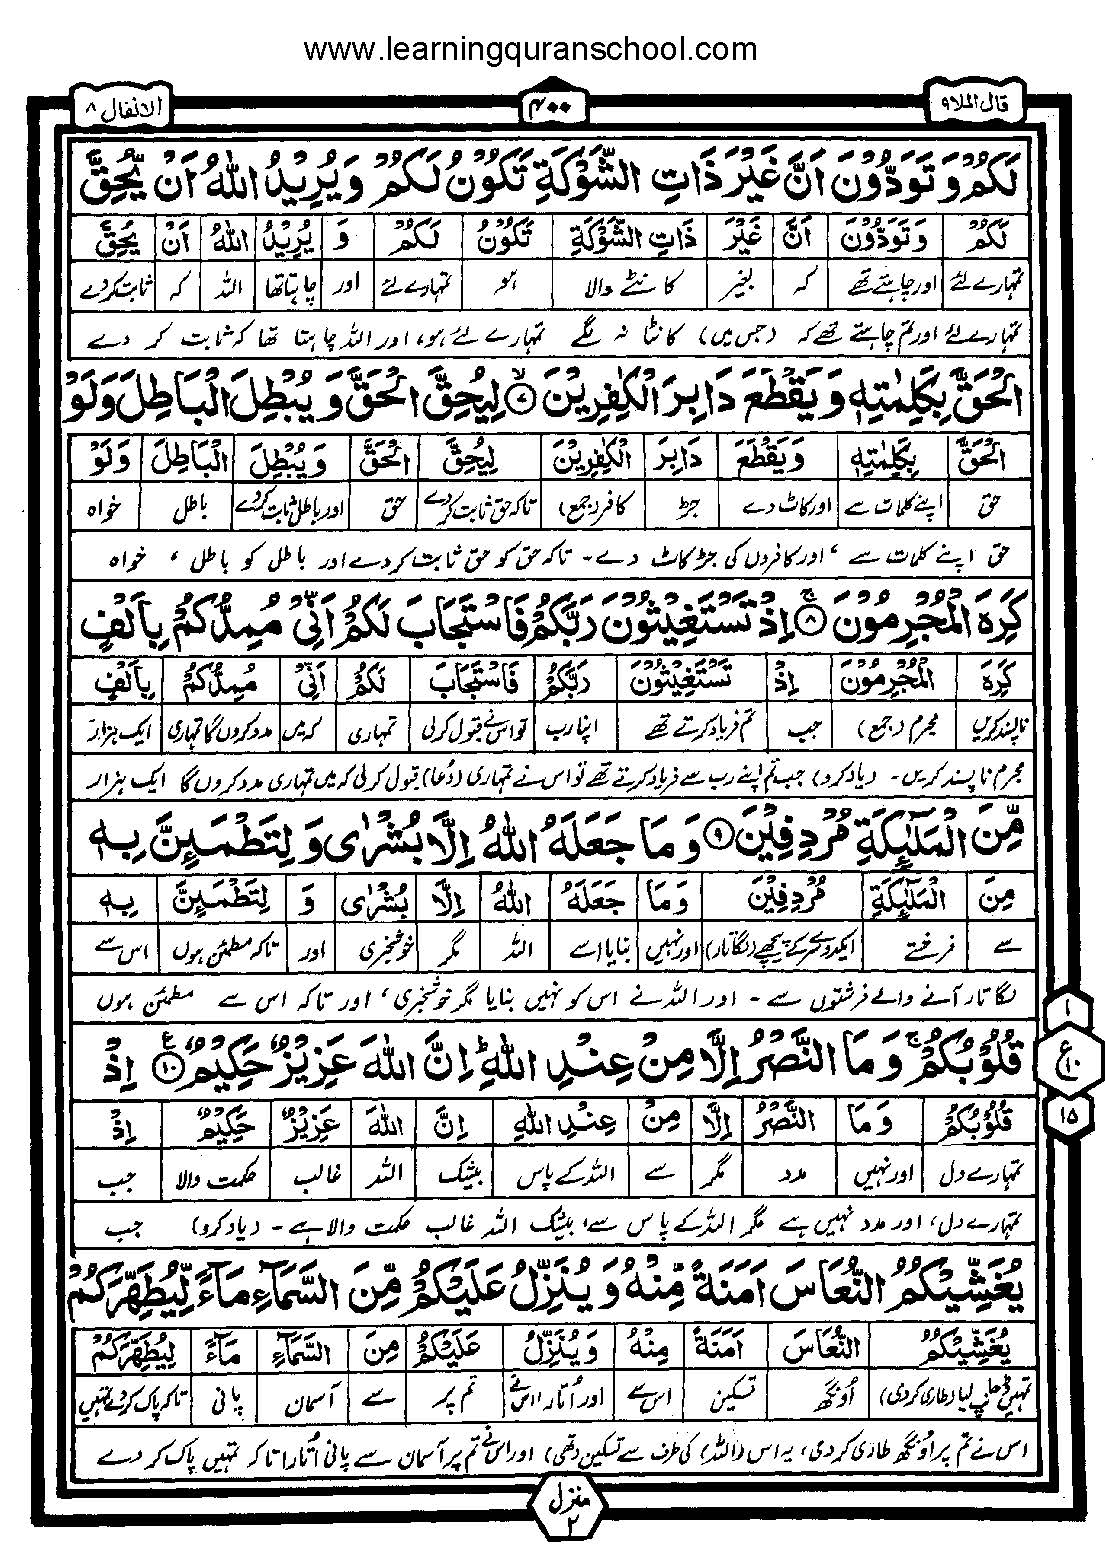 www.learningquranschool.com
قال الملا ٩
۴۰۰
الانفال ٨
لَكُمْ وَتَوَدُّوْنَ اَنَّ غَيْرَ ذَاتِ الشَّوْكَةِ تَكُوْنُ لَكُمْ وَيُرِيْدُ اللّٰهُ اَنْ يُّحِقَّ
لَكُمْ وَتَوَدُّوْنَ اَنَّ غَيْرَ ذَاتِ الشَّوْكَةِ تَكُوْنُ لَكُمْ وَ يُرِيْدُ اللّٰهُ اَنْ يُّحِقَّ
تمہارے لئے اور چاہتے تھے کہ بغیر کانٹے والا ہو تمہارے لئے اور چاہتا تھا اللہ کہ ثابت کردے
تمہارے لئے اور تم چاہتے تھے کہ (جس میں) کانٹا نہ لگے تمہارے لئے ہو، اور اللہ چاہتا تھا کہ ثابت کر دے
الْحَقَّ بِكَلِمٰتِهٖ وَيَقْطَعَ دَابِرَ الْكٰفِرِيْنَ ۙ‏﴿۷﴾ لِيُحِقَّ الْحَقَّ وَيُبْطِلَ الْبَاطِلَ وَلَوْ
الْحَقَّ بِكَلِمٰتِهٖ وَيَقْطَعَ دَابِرَ الْكٰفِرِيْنَ لِيُحِقَّ الْحَقَّ وَيُبْطِلَ الْبَاطِلَ وَلَوْ
حق اپنے کلمات سے اور کاٹ دے جڑ کافر (جمع) تاکہ حق ثابت کردے حق اور باطل ثابت کردے باطل خواہ
حق اپنے کلمات سے، اور کافروں کی جڑ کاٹ دے۔ تاکہ حق کو حق ثابت کردے اور باطل کو باطل، خواہ
كَرِهَ الْمُجْرِمُوْنَ ۚ‏﴿۸﴾ اِذْ تَسْتَغِيْثُوْنَ رَبَّكُمْ فَاسْتَجَابَ لَكُمْ اَنِّىْ مُمِدُّكُمْ بِاَلْفٍ
كَرِهَ الْمُجْرِمُوْنَ اِذْ تَسْتَغِيْثُوْنَ رَبَّكُمْ فَاسْتَجَابَ لَكُمْ اَنِّىْ مُمِدُّكُمْ بِاَلْفٍ
ناپسند کریں مجرم (جمع) جب تم فریاد کرتے تھے اپنا رب تو اس نے قبول کرلی تمہاری کہ میں مدد کروں گا تمہاری ایک ہزار
مجرم ناپسند کریں۔ (یاد کرو) جب تم اپنے رب سے فریاد کرتے تھے تو اس نے تمہاری (دُعا) قبول کرلی کہ میں تمہاری مدد کروں گا ایک ہزار
مِّنَ الْمَلٰٓئِكَةِ مُرْدِفِيْنَ ﴿۹﴾ وَمَا جَعَلَهُ اللّٰهُ اِلَّا بُشْرٰى وَلِتَطْمَئِنَّ بِهٖ
مِّنَ الْمَلٰٓئِكَةِ مُرْدِفِيْنَ وَمَا جَعَلَهُ اللّٰهُ اِلَّا بُشْرٰى وَ لِتَطْمَئِنَّ بِهٖ
سے فرشتے ایکدوسرے کے پیچھے (لگاتار) اور نہیں بنایا اسے اللہ مگر خوشخبری اور تاکہ مطمئن ہوں اس سے
لگاتار آنے والے فرشتوں سے۔ اور اللہ نے اس کو نہیں بنایا مگر خوشخبری، اور تاکہ اس سے مطمئن ہوں
قُلُوْبُكُمْ ۚ وَمَا النَّصْرُ اِلَّا مِنْ عِنْدِ اللّٰهِ ؕ اِنَّ اللّٰهَ عَزِيْزٌ حَكِيْمٌ ﴿۱۰﴾ اِذْ
قُلُوْبُكُمْ وَمَا النَّصْرُ اِلَّا مِنْ عِنْدِ اللّٰهِ اِنَّ اللّٰهَ عَزِيْزٌ حَكِيْمٌ اِذْ
تمہارے دل اور نہیں مدد مگر سے اللہ کے پاس بیشک اللہ غالب حکمت والا جب
تمہارے دل، اور مدد نہیں ہے مگر اللہ کے پاس سے، بیشک اللہ غالب حکمت والا ہے۔ (یاد کرو) جب
يُغَشِّيْكُمُ النُّعَاسَ اَمَنَةً مِّنْهُ وَيُنَزِّلُ عَلَيْكُمْ مِّنَ السَّمَآءِ مَآءً لِّيُطَهِّرَكُمْ
يُغَشِّيْكُمُ النُّعَاسَ اَمَنَةً مِّنْهُ وَيُنَزِّلُ عَلَيْكُمْ مِّنَ السَّمَآءِ مَآءً لِّيُطَهِّرَكُمْ
تمہیں ڈھانپ لیا (طاری کردی) اُونگھ تسکین اس سے اور اُتارا اس نے تم پر سے آسمان پانی تاکہ پاک کردے تمہیں
اس نے تم پر اُونگھ طاری کردی، یہ اس (اللہ) کی طرف سے تسکین (تھی) اور اس نے تم پر آسمان سے پانی اُتارا تاکہ تمہیں پاک کر دے
۱
ع ۱۰
۱۵
منزل ۲